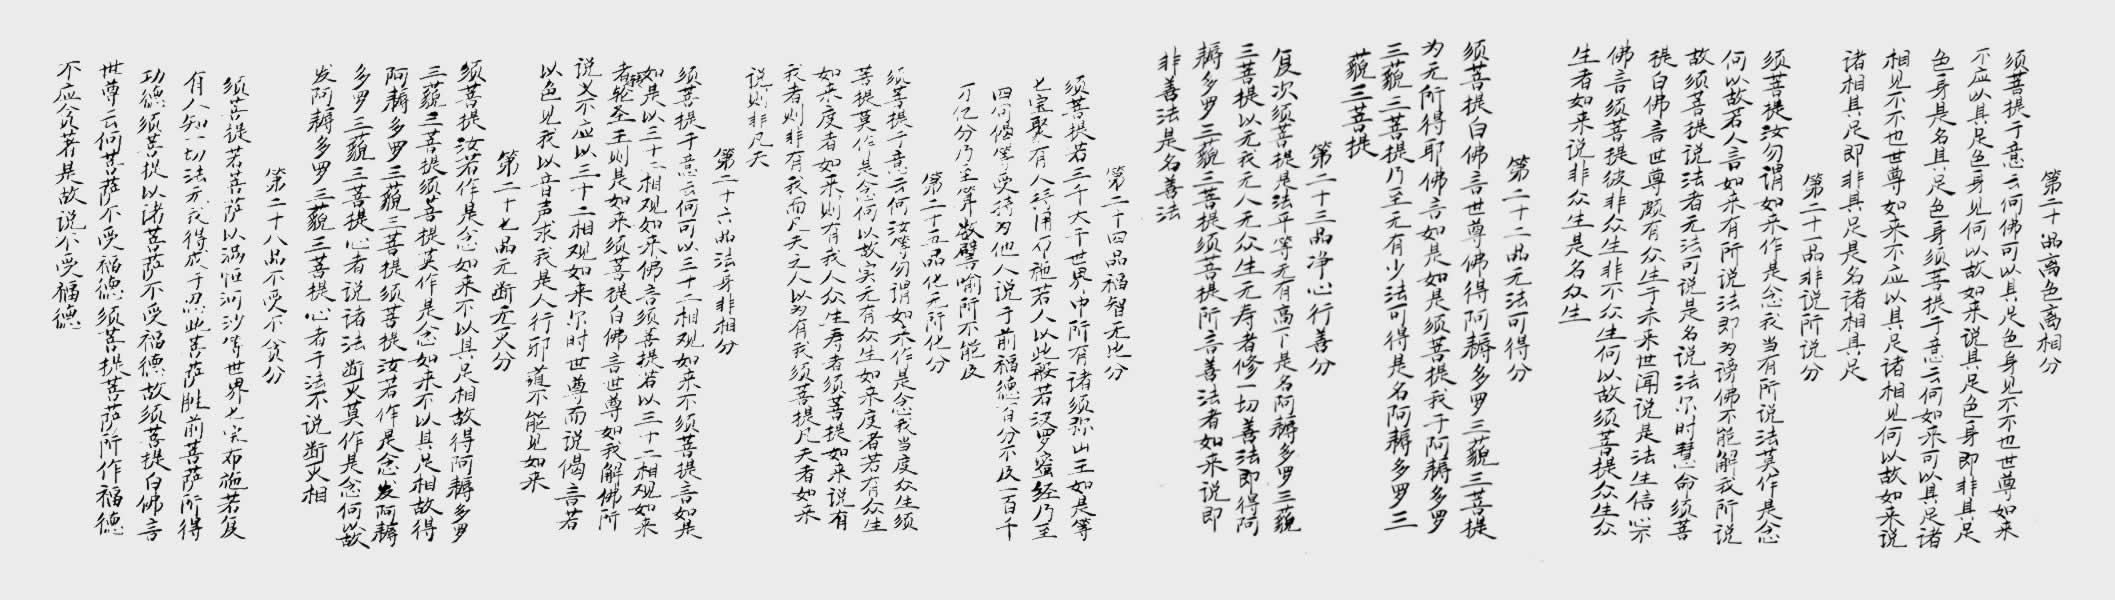 第二十品离色离相分
须菩提于意云何佛可以具足色身见不不也世尊如来
不应以具足色身见何以故如来说具足色身即非具足
色身是名具足色身须菩提于意云何如来可以具足诸
相见不不也世尊如来不应以具足诸相见何以故如来说
诸相具足即非具足是名诸相具足
第二十一品非说所说分
须菩提汝勿谓如来作是念我当有所说法莫作是念
何以故若人言如来有所说法即为谤佛不能解我所说
故须菩提说法者无法可说是名说法尔时慧命须菩
提白佛言世尊颇有众生于未来世闻说是法生信心不
佛言须菩提彼非众生非不众生何以故须菩提众生众
生者如来说非众生是名众生
第二十二品无法可得分
须菩提白佛言世尊佛得阿耨多罗三藐三菩提
为无所得耶佛言如是如是须菩提我于阿耨多罗
三藐三菩提乃至无有少法可得是名阿耨多罗三
藐三菩提
第二十三品净心行善分
复次须菩提是法平等无有高下是名阿耨多罗三藐
三菩提以无我无人无众生无寿者修一切善法即得阿
耨多罗三藐三菩提须菩提所言善法者如来说即
非善法是名善法
第二十四品福智无比分
须菩提若三千大千世界中所有诸须弥山王如是等
七宝聚有人持用布施若人以此般若波罗蜜经乃至
四句偈等受持为他人说于前福德百分不及一百千
万亿分乃至算数譬喻所不能及
第二十五品化无所化分
须菩提于意云何汝等勿谓如来作是念我当度众生须
菩提莫作是念何以故实无有众生如来度者若有众生
如来度者如来则有我人众生寿者须菩提如来说有
我者则非有我而凡夫之人以为有我须菩提凡夫者如来
说则非凡夫
第二十六品法身非相分
须菩提于意云何可以三十二相观如来不须菩提言如是
如是以三十二相观如来佛言须菩提若以三十二相观如来
者转轮圣王则是如来须菩提白佛言世尊如我解佛所
说义不应以三十二相观如来尔时世尊而说偈言若
以色见我以音声求我是人行邪道不能见如来
第二十七品无断无灭分
须菩提汝若作是念如来不以具足相故得阿耨多罗
三藐三菩提须菩提莫作是念如来不以具足相故得
阿耨多罗三藐三菩提须菩提汝若作是念发阿耨
多罗三藐三菩提心者说诸法断灭莫作是念何以故
发阿耨多罗三藐三菩提心者于法不说断灭相
第二十八品不受不贪分
须菩提若菩萨以满恒河沙等世界七宝布施若复
有人知一切法无我得成于忍此菩萨胜前菩萨所得
功德须菩提以诸菩萨不受福德故须菩提白佛言
世尊云何菩萨不受福德须菩提菩萨所作福德
不应贪著是故说不受福德